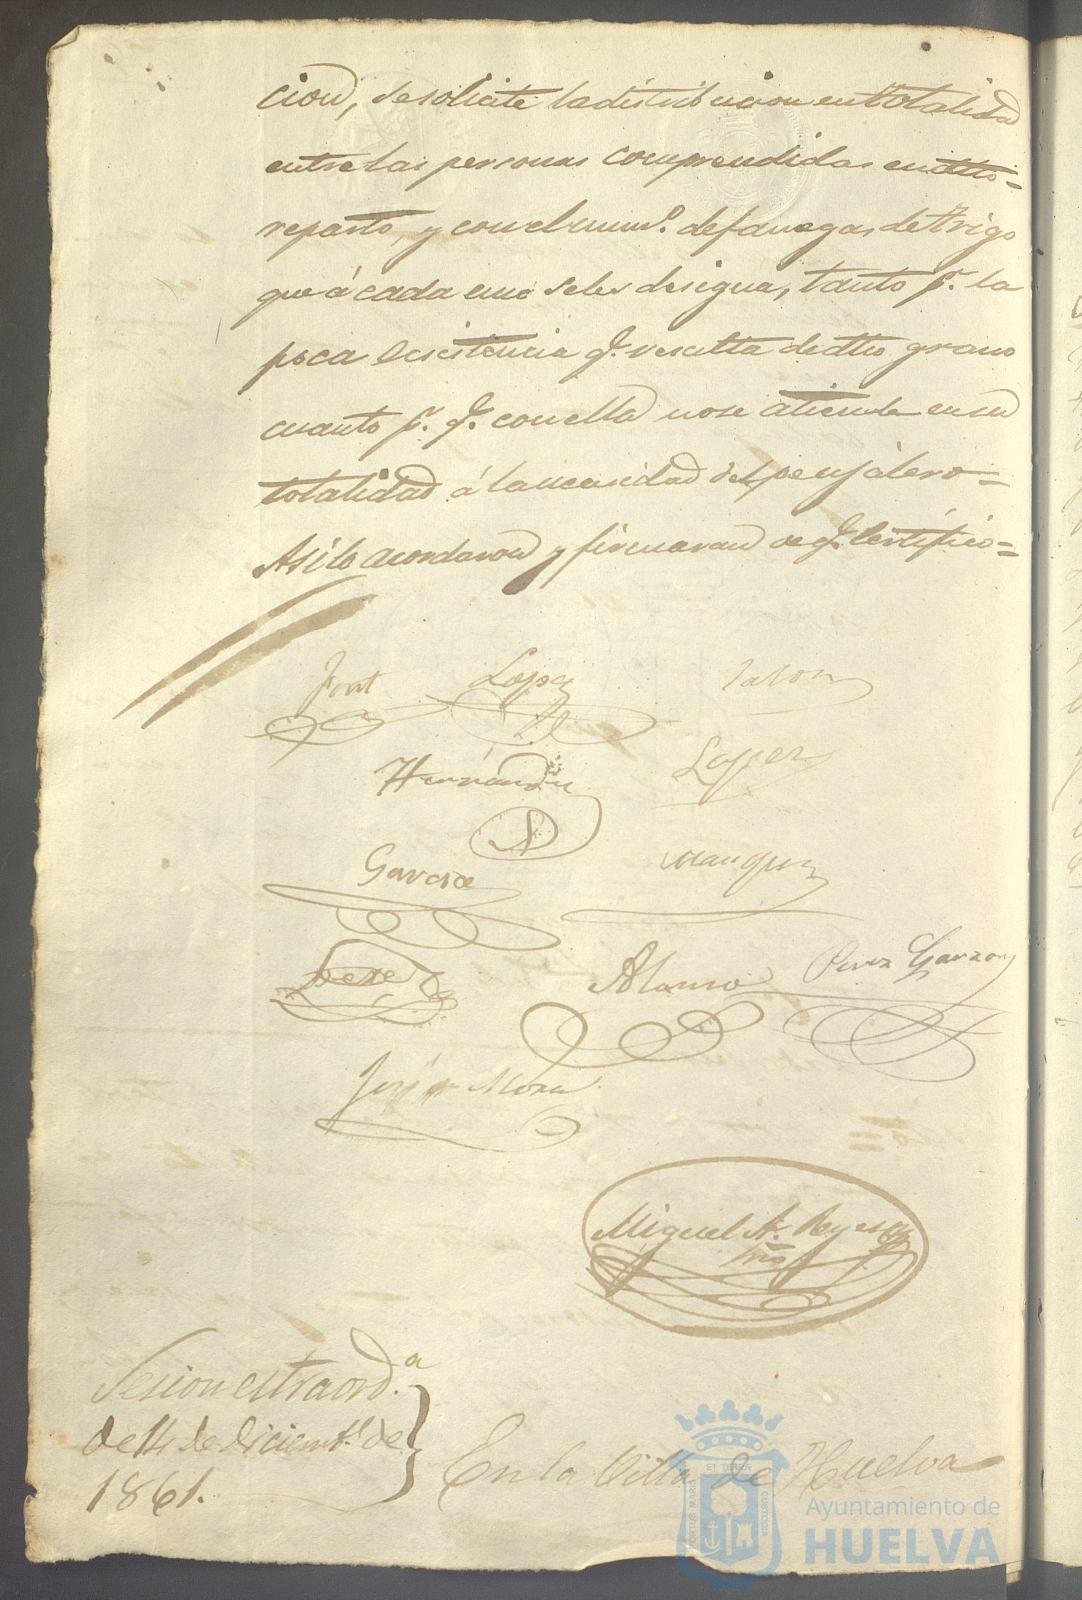 cion, se solicite la distribucion en totalidad
entre las personas comprendidas en dho
reparto, y con el num.º de fanegas de trigo
que á cada uno se les designa, tanto p.r la
poca ecsistencia q.e resulta de dho grano
cuanto p.r q.e con ella no se atiende en su
totalidad á la necesidad del pegujalero=
Asi lo acordaron y firmaran de q.e certifico=
Font Lopez
Hernandez Lopez
Garcia
Alonso Perez Garzon
José Mora
Miguel A. Reyes
Srio
Sesion estraord.a
de 14 de diciemb.e de
1861.
En la Villa de Huelva
PORTUS MARIS ET TERRÆ CUSTODIA
Ayuntamiento de
HUELVA